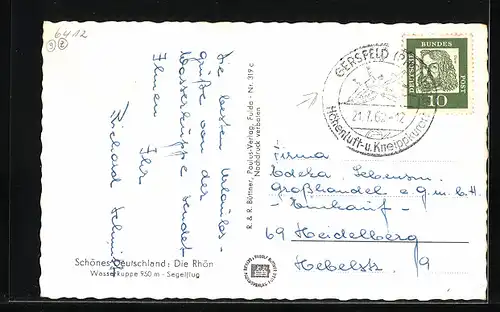 6412
3 2
Die besten Urlaubs-
grüße von der
Wasserkuppe sendet
Ihnen Ihr
Richard
Schönes Deutschland: Die Rhön
Wasserkuppe 950 m - Segelflug
R. & R. Büttner, Paulus-Verlag, Fulda - Nr. 319 c
Nachdruck verboten
GERSFELD
21.7.62-12
Höhenluft-u. Kneippkurort
DEUTSCHE
BUNDES
POST
10
Firma
Edeka Lebensm.
Großhandel e.G.m.b.H.
- Einkauf -
69 Heidelberg
Hebelstr. 9